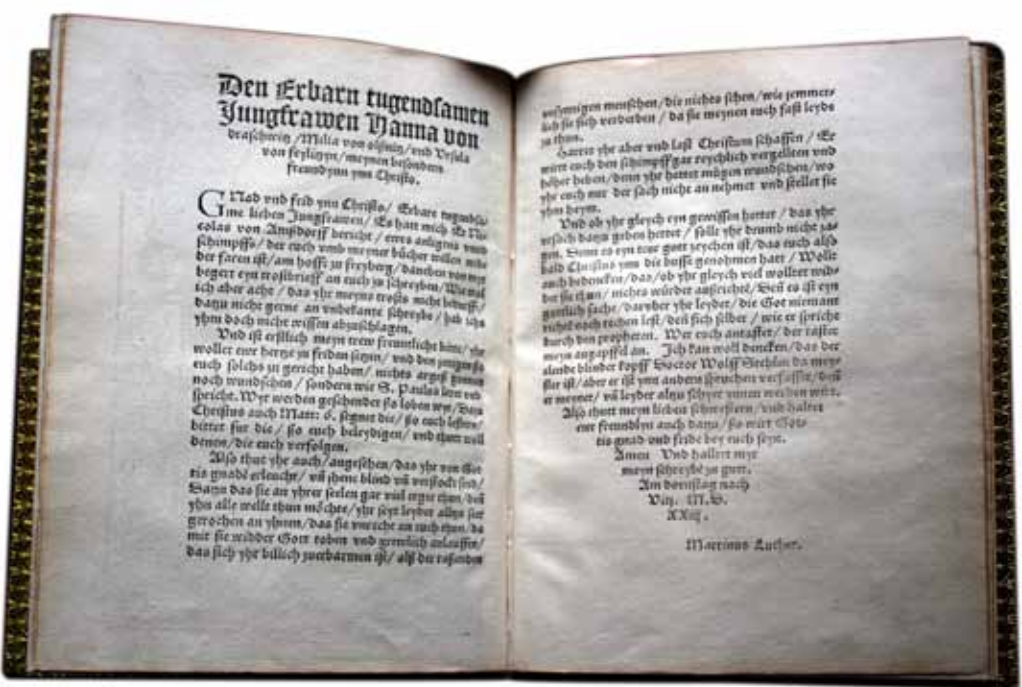 Den Erbarn tugendsamen
Jungfrawen Hanna von
draschwitz / Milia von olsnitz / vnd Vrsula
von feylitzyn / meynen besondern
freundynn ynn Christo.
GNad vnd frid ynn Christo / Erbare tugendsa-
me lieben Jungfrawen / Es hatt mich Er Ni-
colas von Amßdorff bericht / ewrs anligens vnnd
schimpffs / der euch vmb meyner bücher willen wid-
der faren ist / am hoffe zu freyberg / daneben von myr
begert eyn trostbrieff an euch zu schreyben / Wie wol
ich aber acht / das yhr meyns trosts nicht bedurfft /
datzu nicht gerne an vnbekante schreybe / hab ichs
yhm doch nicht wissen abzuschlagen.
Vnd ist erstlich meyn trew freuntliche bitte / yhr
wollet ewr hertze zu friden setzen / vnd den jenigen so
euch solchs zu gericht haben / nichts arges gunnen
noch wundschen / sondern wie S. Paulus leret vnd
spricht. Wyr werden geschendet so loben wyr / Datzu
Christus auch Matt: 6. segnet die / so euch lestern /
bittet fur die / so euch beleydigen / vnd thutt woll
denen / die euch verfolgen.
Also thut yhr auch / angesehen / das yhr von Got-
tis gnadē erleucht / vñ yhene blind vñ verstockt sind /
Datzu das sie an yhrer seelen gar viel erger thun / deñ
yhn alle wellt thun möchte / yhr seyt leyder allzu seer
gerochen an yhnen / das sie vnrecht an euch thun / da
mit sie widder Gott toben vnd grewlich anlauffen /
das sich yhr billich zuerbarmen ist / alß der rasenden
vnsynnigen menschen / die nichts sehen / wie jemmer-
lich sie sich verderben / da sie meynen euch fast leyde
zu thun.
Harret yhr aber vnd last Christum schaffen / Er
wirt euch den schimpff gar reychlich vergellten vnd
höher heben / denn yhr hettet mügen wundschen / wo
yhr euch nur der sach nicht an nehmet vnd stellet sie
yhm heym.
Vnd ob yhr gleych eyn gewissen hettet / das yhr
vrsach datzu geben hettet / sollt yhr drumb nicht za-
gen. Denn es eyn tewr gott zeychen ist / das euch also
bald Christus ynn die busse genohmen hatt / Wollt
auch bedencken / das / ob yhr gleych viel wolltet wid-
der sie thun / nichts würdet außricht / Deñ es ist eyn
gottlich sache / daruber yhr leydet / die Got niemant
richtet noch rechen lest / deñ sich selber / wie er spricht
durch den propheten. Wer euch antastet / der tastet
meyn augapffel an. Jch kan woll dencken / das der
elende blinder kopff Doctor Wolff Stehlin da mey-
ster ist / aber er ist ynn andern spruchen verfasset / deñ
er meynet / vñ leyder allzu schyer ynnen werden wirt.
Also thutt meyn lieben schwestern / vnd halltet
ewr freundyn auch datzu / so wirt Gots
tis gnad vnd fride bey euch seyn.
Amen Vnd halltet myr
meyn schreybē zu gutt.
Am dornstag nach
Viti. M. D.
XXiij.
Martinus Luther.